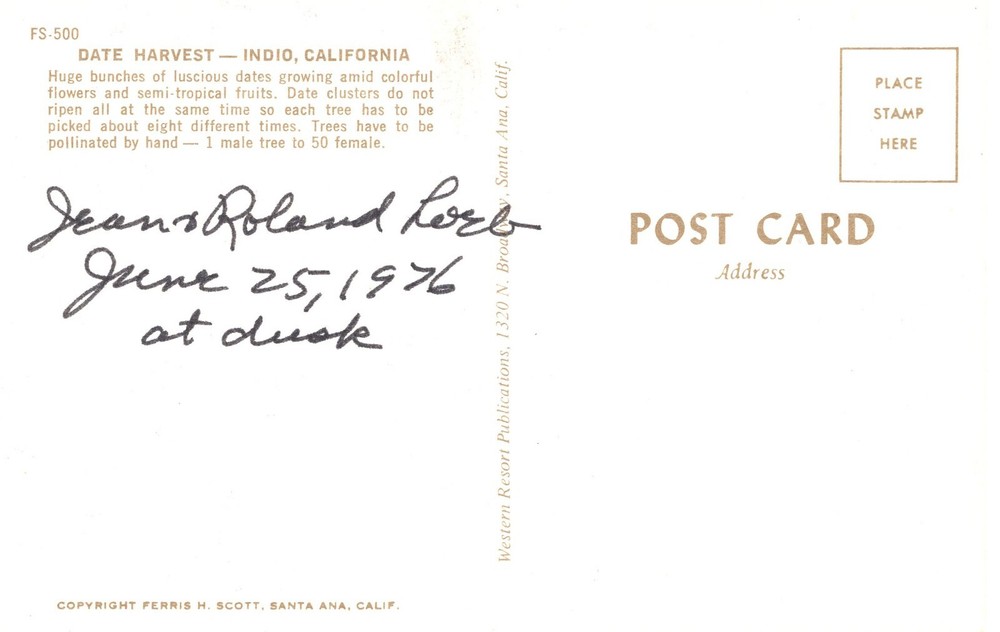 FS-500
DATE HARVEST — INDIO, CALIFORNIA
Huge bunches of luscious dates growing amid colorful
flowers and semi-tropical fruits. Date clusters do not
ripen all at the same time so each tree has to be
picked about eight different times. Trees have to be
pollinated by hand — 1 male tree to 50 female.
Jean & Roland Loeb
June 25, 1976
at dusk
COPYRIGHT FERRIS H. SCOTT, SANTA ANA, CALIF.
Western Resort Publications, 1320 N. Broadway, Santa Ana, Calif.
PLACE
STAMP
HERE
POST CARD
Address